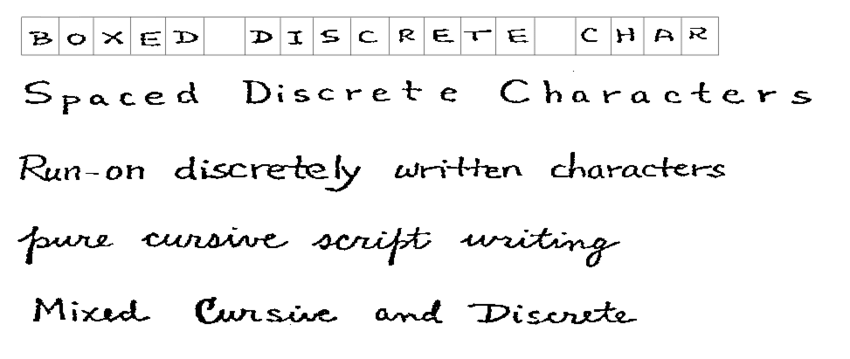 BOXED DISCRETE CHAR
Spaced Discrete Characters
Run-on discretely written characters
pure cursive script writing
Mixed Cursive and Discrete